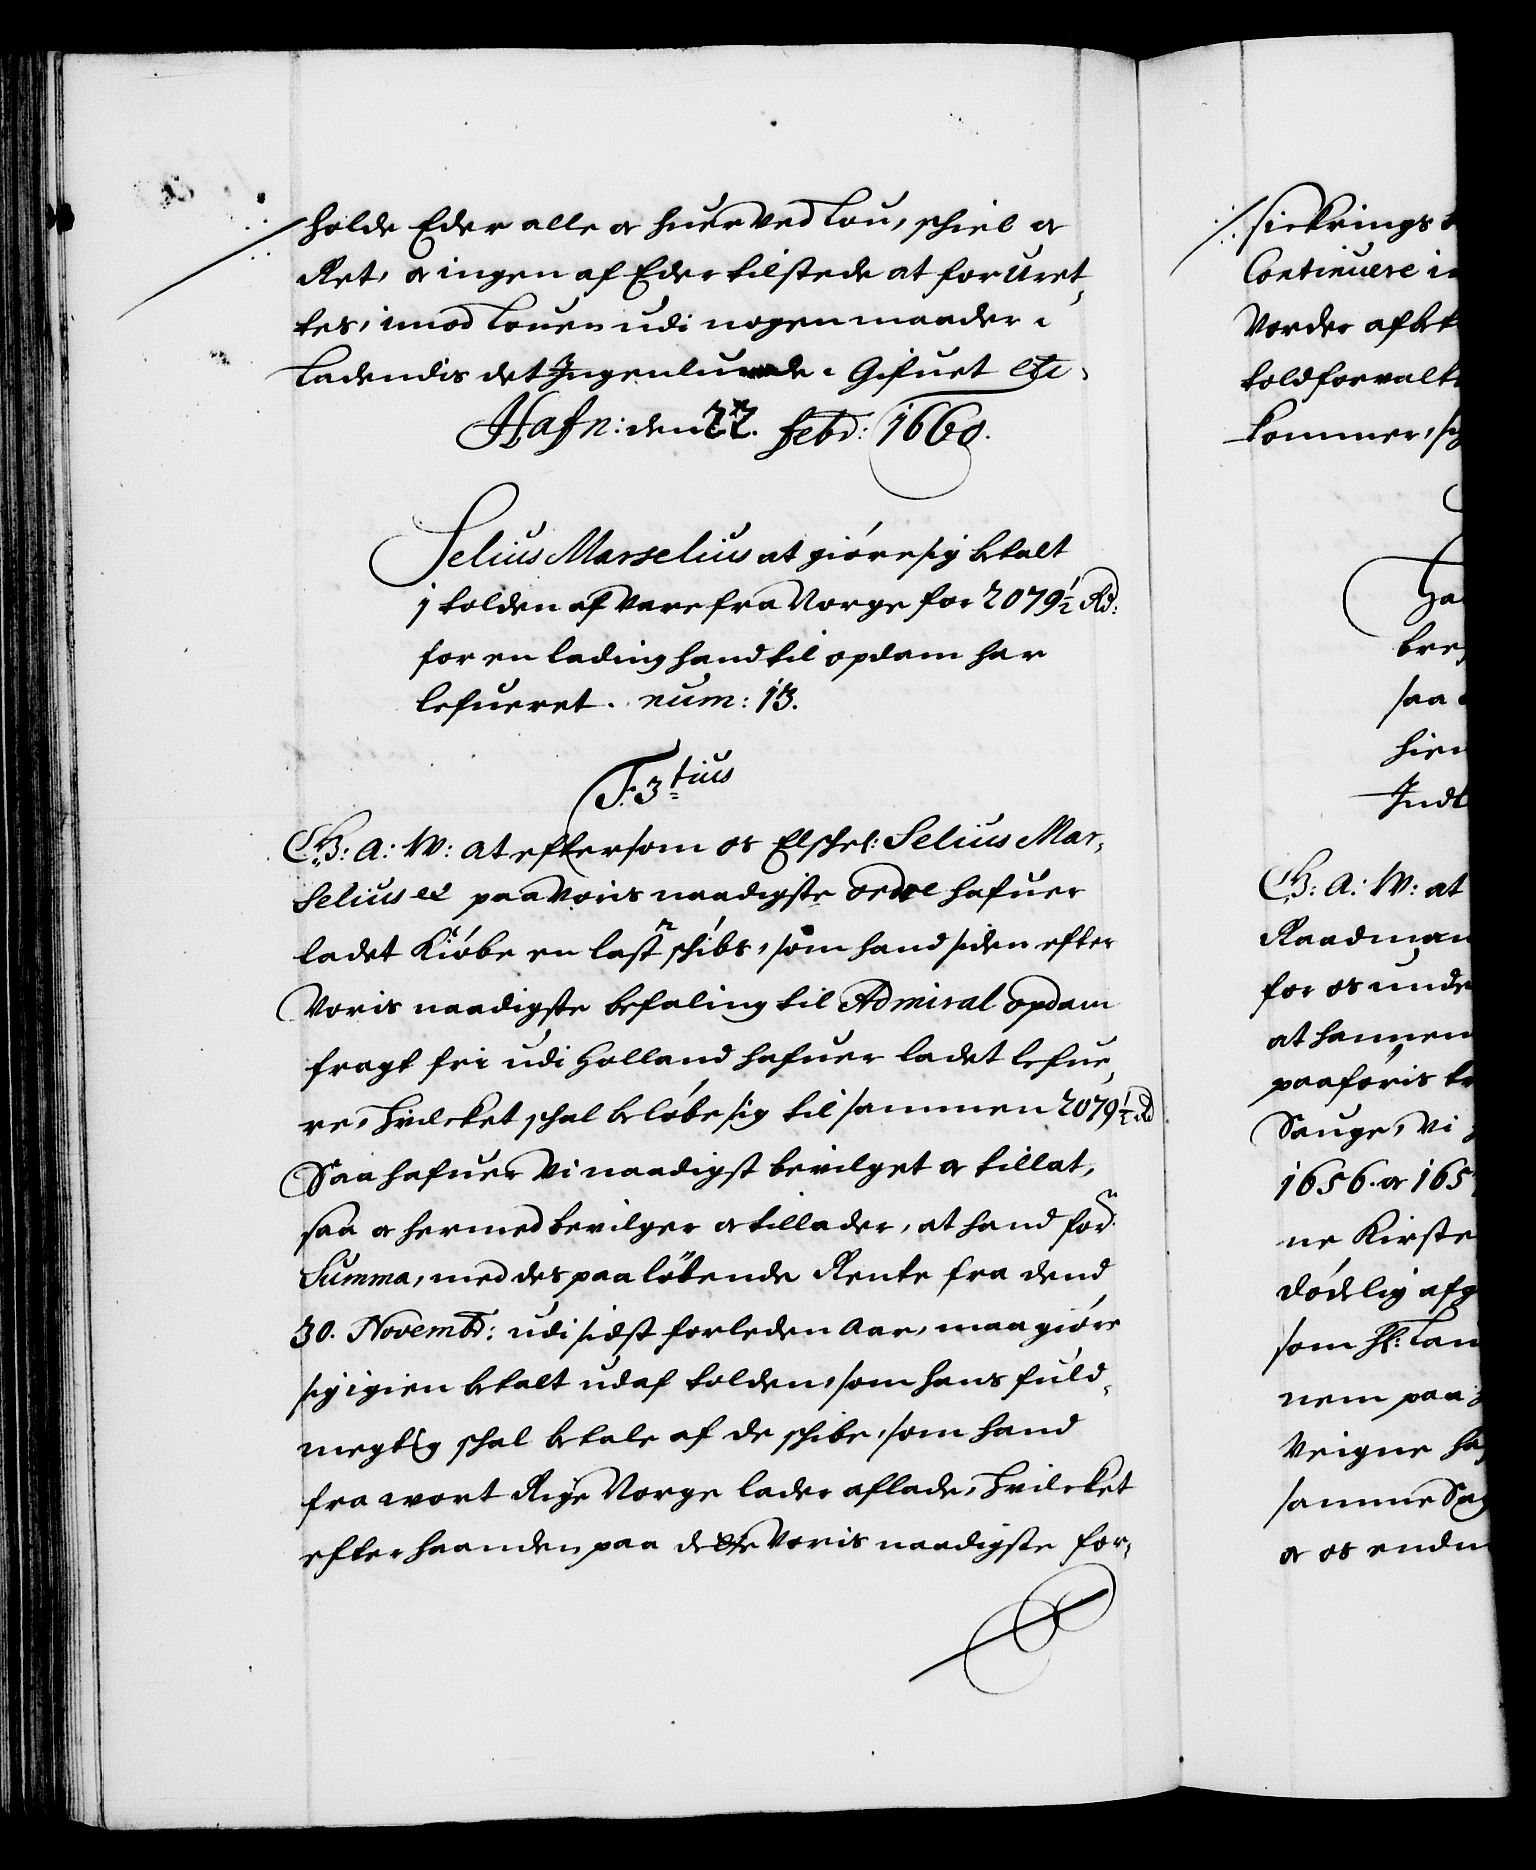 holde Eder alle oc huer ved Lou, schiel oc
Ret, oc ingen af Eder tilstede at for Uret,
tes, imod Louen udi nogen maader.
Ladendis det Ingenlunde. Gifuet etc.
Hafn: den 22. Febr: 1660.
Selius Marselius at giöre sig betalt
j tolden af Vare fra Norge for 2079½ Rd:
for en lading hand til opdam har
lefueret. num: 13.
F. 3tius
G: A: W: at eftersom os Elschel: Selius Mar,
selius paa Voris naadigste ordre hafuer
ladet Kiöbe en last schibs, som hand siden efter
Voris naadigste befaling til Admiral opdam
fragt fri udi Holland hafuer ladet lefue,
re, huilcket schal belöbe sig til sammen 2079½ Rd
Saa hafuer Vi naadigst bevilget oc tillat,
saa oc hermed bevilger oc tillader, at hand for:n
Summa, med des paalöbende Rente fra dend
30. Novemb: udi sidst forleden Aar, maa giöre
sig igien betalt udaf tolden, som hans fuld,
megtig schal betale af de schibe, som hand
fra wort Rige Norge lader aflade, huilcket
efterhaanden paa dette Voris naadigste for,
sickrings
Continuere
Vorder afbet
toldforvalt
kommer, sig
Ha
bref
saa
hien
Indt
G: A: W: at
Raadman
for os unde
at hannem
paaföris
Sauge, Vi
1656. oc 165
ne Kirste
dödelig afg
som Hl: Lan
nem paa
Veigne
samme Sag
oc os endn